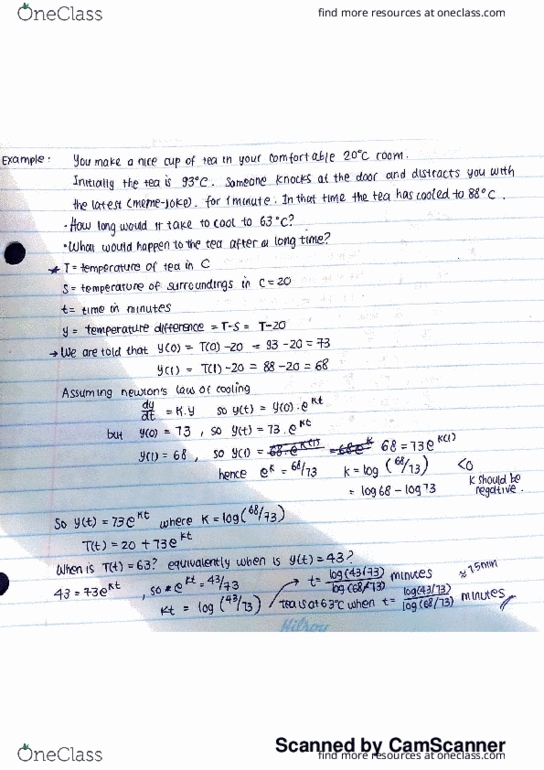 OneClass find more resources at oneclass.com
Example: You make a nice cup of tea in your comfortable 20°C room.
Initially the tea is 93°C. Someone knocks at the door and distracts you with
the latest (meme-joke). for 1 minute. In that time the tea has cooled to 88°C.
• How long would it take to cool to 63°C?
• What would happen to the tea after a long time?
* T = temperature of tea in C
S = temperature of surroundings in C = 20
t = time in minutes
y = temperature difference = T-S = T-20
→ We are told that y(0) = T(0)-20 = 93-20 = 73
y(1) = T(1)-20 = 88-20 = 68
Assuming newton's law of cooling
dy/dt = K.y so y(t) = y(0).e^kt
but y(0) = 73, so y(t) = 73.e^kt
y(1) = 68, so y(1) = 68.e^k(1) = 68e^k 68 = 73e^k(1)
hence e^k = 68/73 k = log (68/73) <0
= log68 - log73 k should be negative.
So y(t) = 73e^kt where k = log(68/73)
T(t) = 20 + 73e^kt
When is T(t) = 63? equivalently when is y(t) = 43?
43 = 73e^kt, so e^kt = 43/73 → t = log(43/73)/log(68/73) minutes ≈ 7.5min
kt = log (43/73) tea is at 63°C when t = log(43/73)/log(68/73) minutes
Hilroy
Scanned by CamScanner
OneClass find more resources at oneclass.com